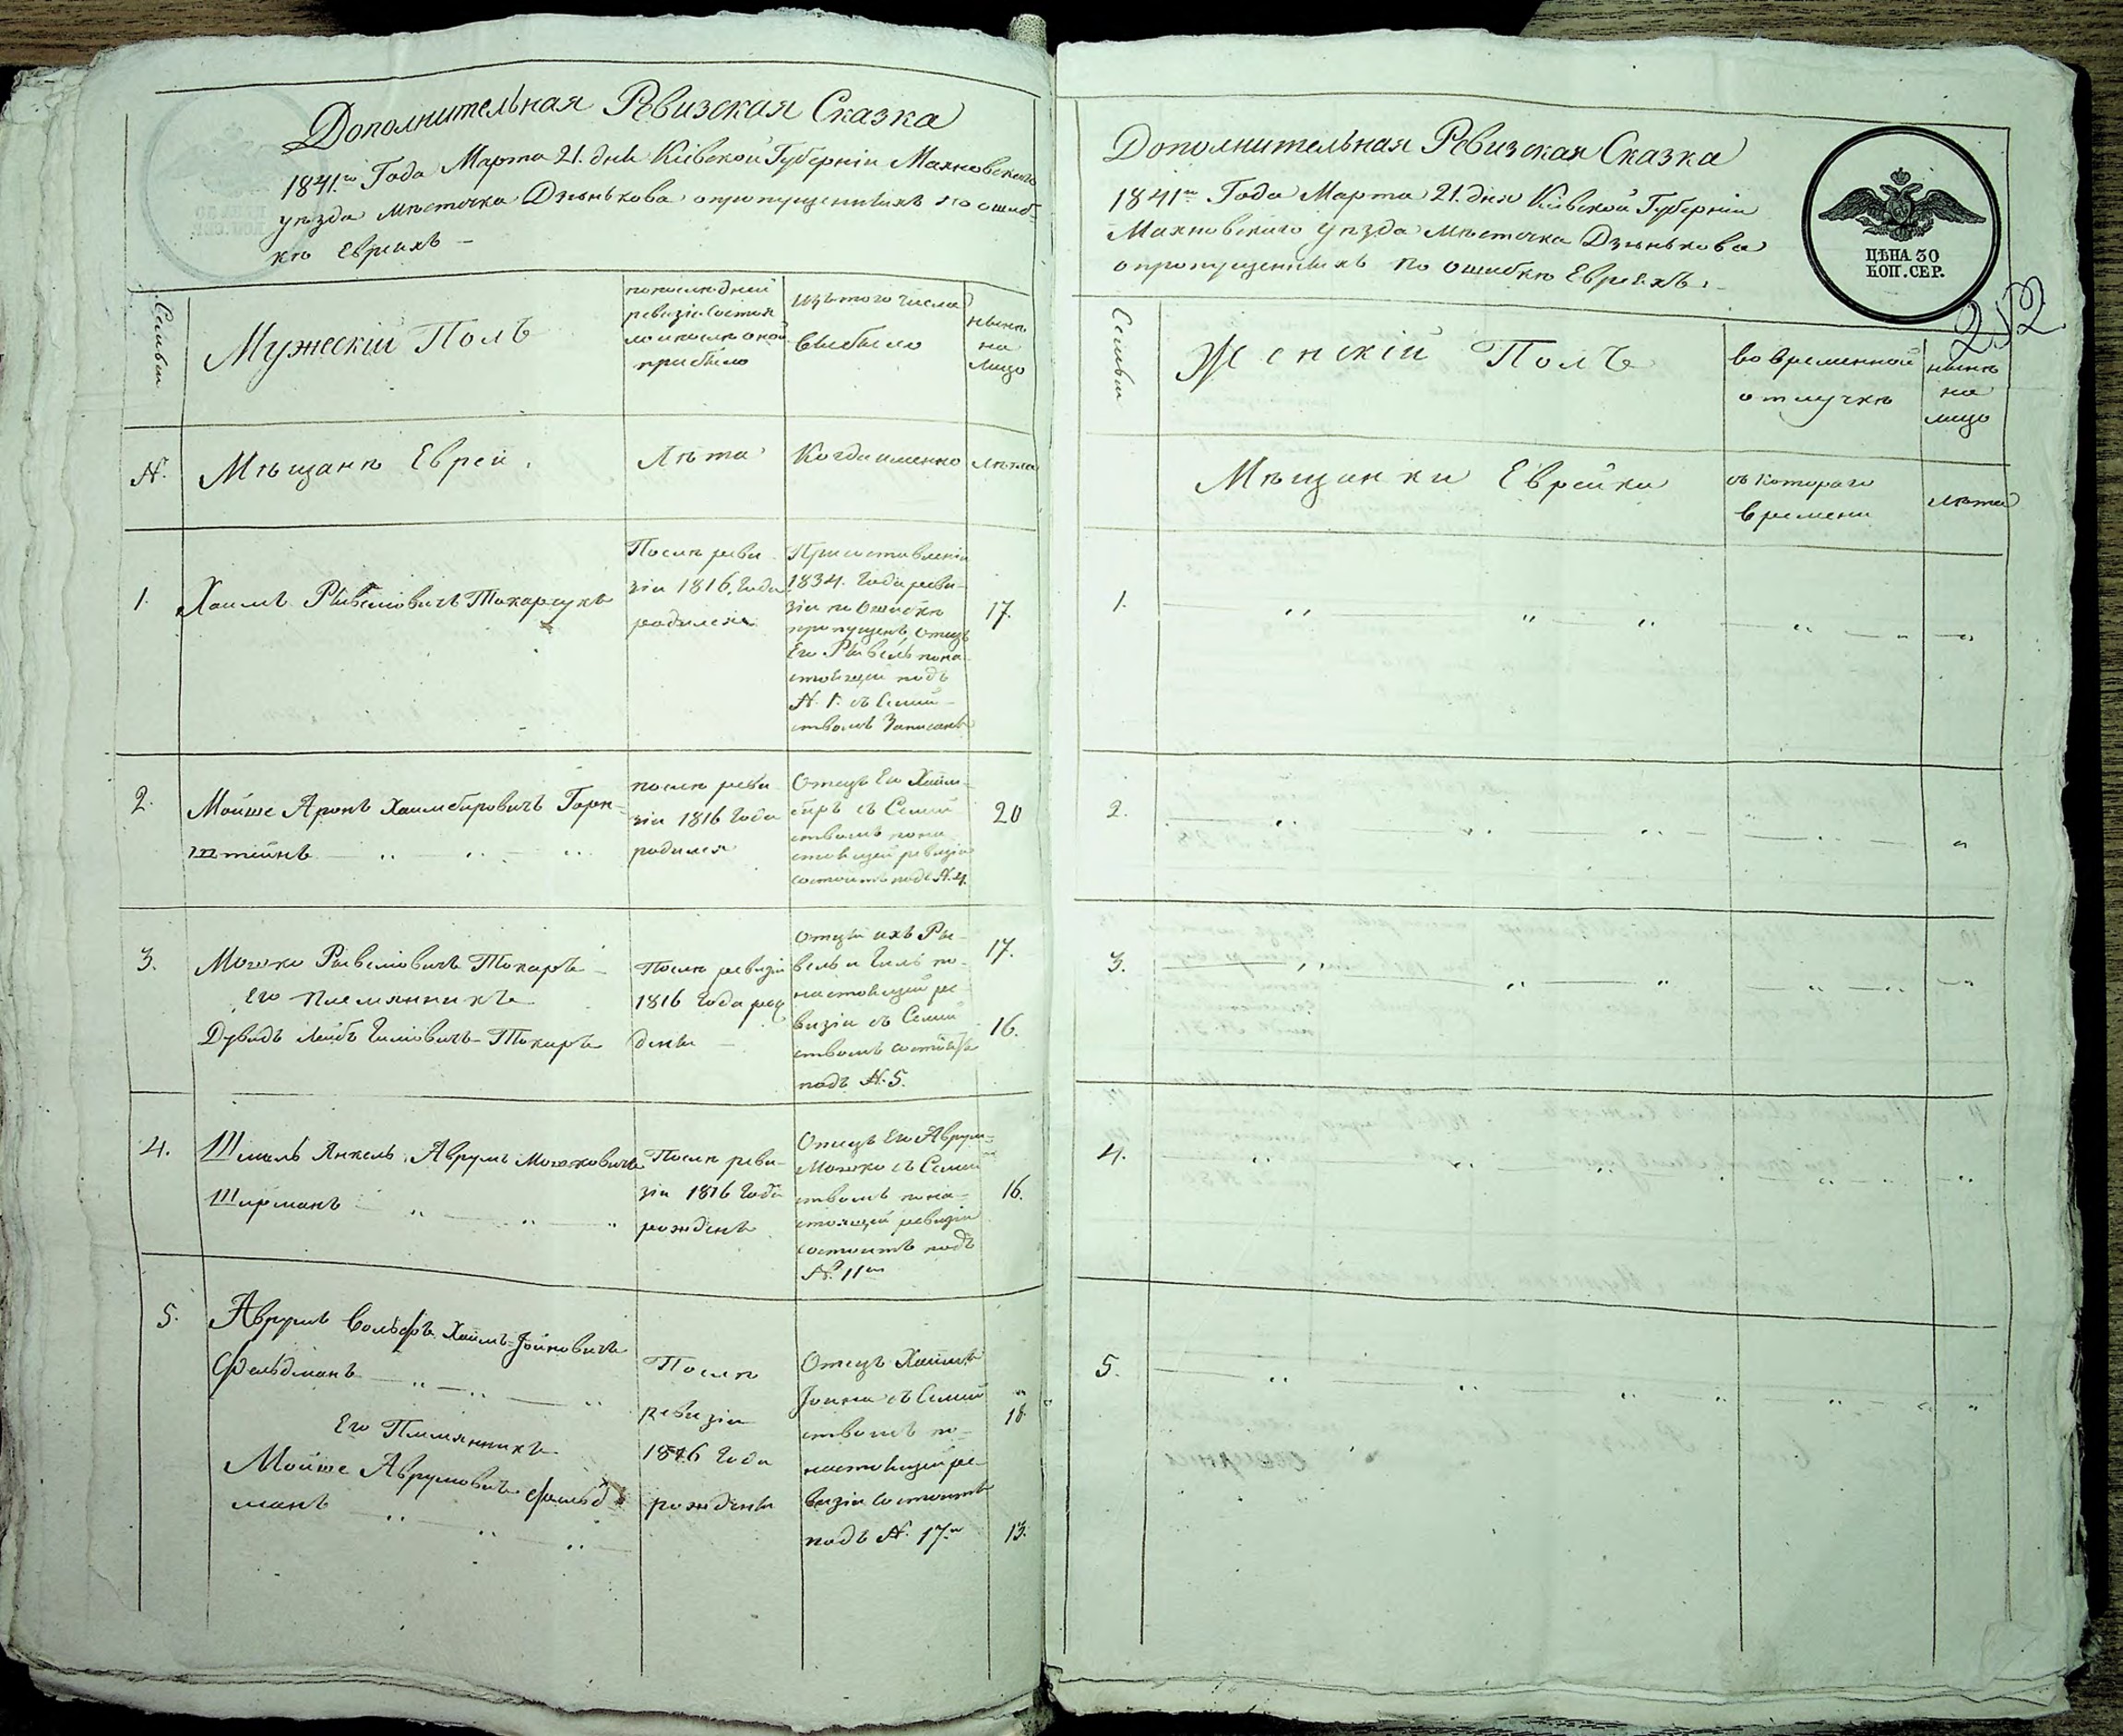 Дополнительная Ревизская Сказка
1841го Года Марта 21. дня Кіевской Губерніи Махновскаго
уѣзда Мѣстечка Дзюнькова о пропущенныхъ по ошиб-
кѣ Евреяхъ –
Семьи
Мужескій Полъ
по послѣдней
ревизіи состоя
ло и послѣ оной
прибыло
Изъ того числа
выбыло
нынѣ
на
лицо
№.
Мѣщане Евреи.
Лѣта
Когда именно
лѣта
1.
Хаимъ Рывелiовичъ Токарчукъ
Послѣ реви-
зіи 1816. Года
родился
При составленіи
1834. Года реви-
зіи по Ошибкѣ
пропущенъ, отецъ
Его Рывель по на-
стоящей подъ
№ 1. съ Семей-
ствомъ Записанъ
17.
2.
Мойше Аронъ Хаимберовичъ Горн-
штейнъ
послѣ реви-
зіи 1816 Года
родился
Отецъ Его Хаим-
беръ съ Семей-
ствомъ по на-
стоящей ревизіи
состоитъ подъ №. 4.
20
3.
Мошко Рывелiовичъ Токарь
Его племянникъ
Дувидъ Лейбъ Гилiовичъ Токарь
Послѣ ревизіи
1816 Года рож
дены –
Отцы ихъ Ры-
вель и Гиль по
настоящей ре-
визіи съ Семей-
ствомъ состоятъ
подъ №. 5.
17.
16.
4.
Шмиль Янкель Аврумъ Мошковичъ
Ширманъ
Послѣ реви-
зіи 1816 Года
рожденъ
Отецъ Его Аврум-
Мошко съ Семей-
ствомъ по на-
стоящей ревизіи
состоитъ подъ
№. 11м
16.
5.
Аврумъ Вольфъ Хаимъ-Іойновичъ
Фельдманъ
Его Племянникъ
Мойше Аврумовичъ Фельд
манъ
Послѣ
ревизіи
1816 Года
рождены
Отецъ Хаимъ
Іойна съ Семей
ствомъ по
настоящей ре-
визіи состоитъ
подъ №. 17м
18.
13.
Дополнительная Ревизская Сказка
1841го Года Марта 21. дня Кіевской Губерніи
Махновскаго уѣзда Мѣстечка Дзюнькова
о пропущенныхъ по ошибкѣ Евреяхъ. –
ЦѢНА 30
КОП. СЕР.
212
Семьи
Женскій Полъ
во временной
отлучкѣ
нынѣ
на
лицо
Мѣщанки Еврейки
съ котораго
времени
лѣта
1.
2.
3.
4.
5.